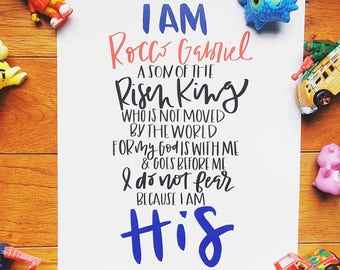 I AM
Rocco Gabriel
A SON OF THE
Risen King
WHO IS NOT MOVED
BY THE WORLD
FOR my GOD IS WITH ME
& GOES BEFORE ME
I do not fear
BECAUSE I AM
HIS